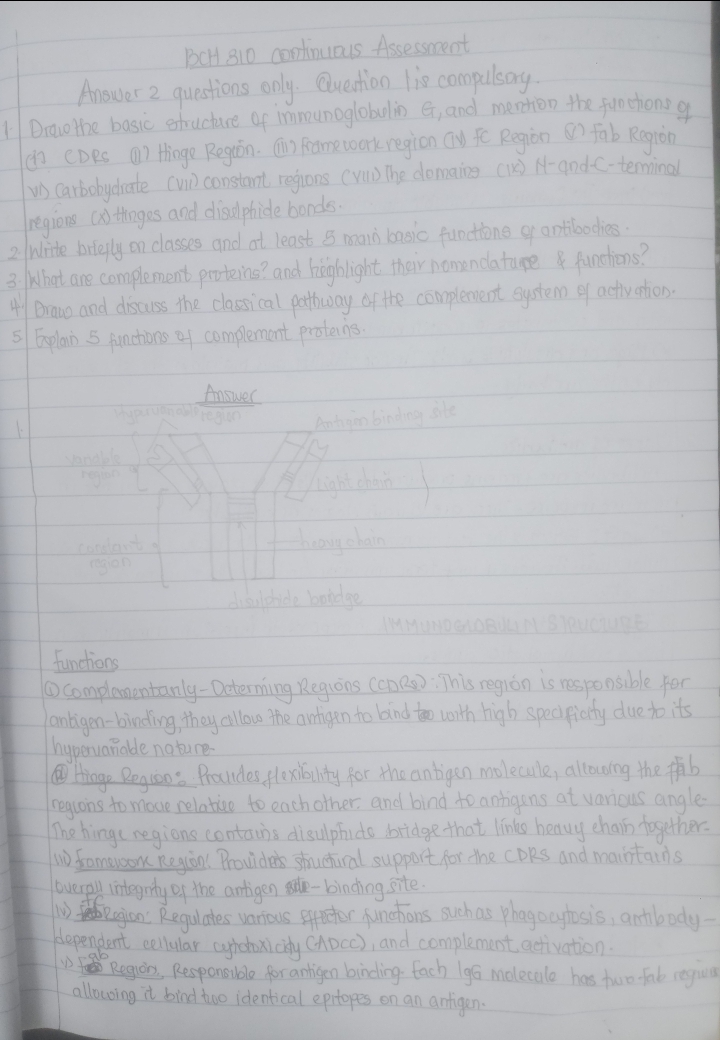 BCH 310 continuous Assessment
Answer 2 questions only. Question 1 is compulsory.
1. Draw the basic structure of immunoglobulin G, and mention the functions of
(i) CDRs (ii) Hinge Region. (iii) Framework region (iv) FC Region (v) Fab Region
vi) Carbohydrate (vii) constant regions (viii) The domains (ix) N-and-C-terminal
regions (x) Hinges and disulphide bonds.
2. Write briefly on classes and at least 5 main basic functions of antibodies.
3. What are complement proteins? and highlight their nomenclature & functions?
4. Draw and discuss the classical pathway of the complement system of activation.
5. Explain 5 functions of complement proteins.
Answer
1.
Hypervariable region
Antigen binding site
variable region
Light chain
constant region
heavy chain
disulphide bridge
IMMUNOGLOBULIN STRUCTURE
Functions
(i) Complementarily-Determing Regions (CDRs): This region is responsible for
antigen-binding, they allow the antigen to bind with high specificity due to its
hypervariable nature.
(ii) Hinge Region: Provides flexibility for the antigen molecule, allowing the fab
regions to move relative to each other and bind to antigens at various angle.
The hinge regions contains disulphide bridge that links heavy chain together.
iii) framework Region: Provides structural support for the CDRs and maintains
overall integrity of the antigen -binding site.
iv) Fc Region: Regulates various Effector functions such as phagocytosis, antibody-
dependent cellular cytotoxicity (ADCC), and complement activation.
v) Fab Region. Responsible for antigen binding. Each IgG molecule has two fab regions
allowing it bind two identical epitopes on an antigen.